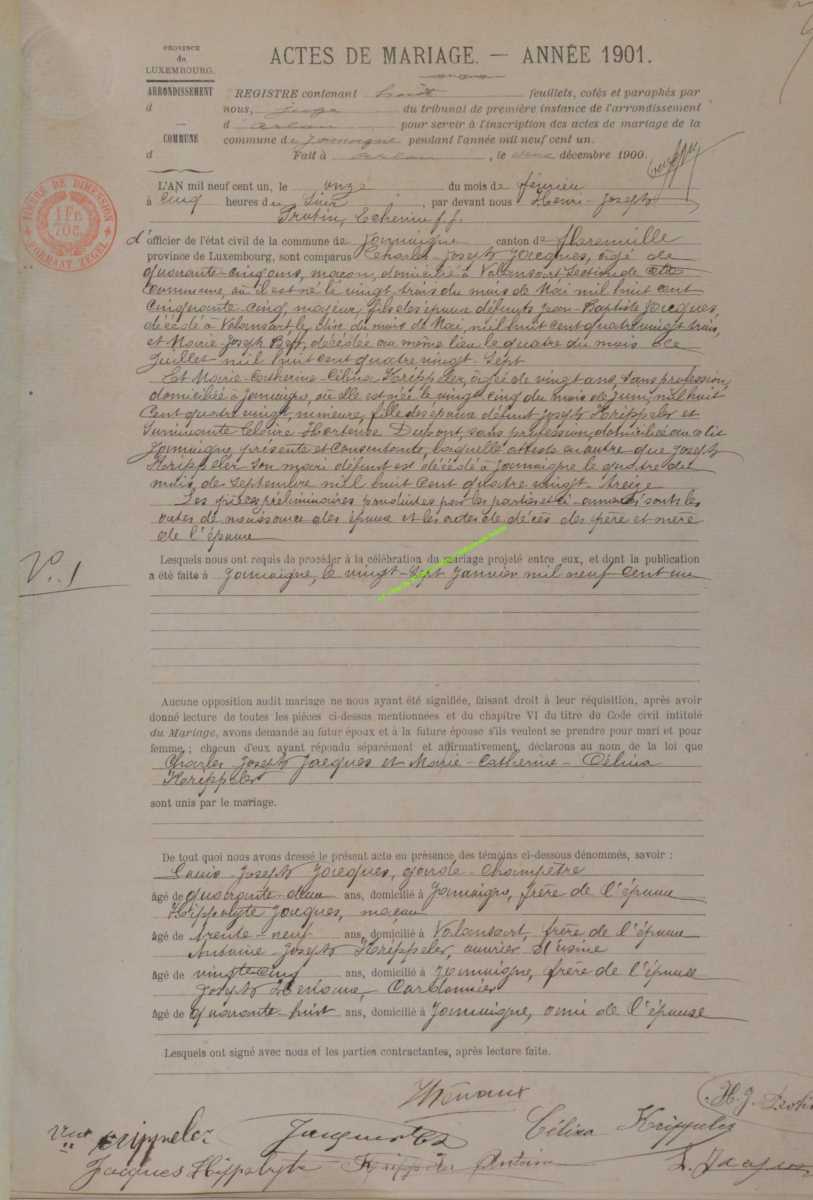 PROVINCE
de
LUXEMBOURG.
ARRONDISSEMENT
d
COMMUNE
d
ACTES DE MARIAGE. — ANNÉE 1901.
REGISTRE contenant huit feuillets, cotés et paraphés par
nous, juge du tribunal de première instance de l'arrondissement
d'Arlon pour servir à l'inscription des actes de mariage de la
commune de Jamoigne pendant l'année mil neuf cent un.
Fait à Arlon, le décembre 1900.
TIMBRE DE DIMENSION
1 FR.
70 C.
FORMAAT ZEGEL
L'AN mil neuf cent un, le onze du mois de février
à cinq heures du soir, par devant nous Henri-Joseph
d'officier de l'état civil de la commune de Jamoigne canton de Florenville
province de Luxembourg, sont comparus Charles-Joseph Jacques, âgé de
quarante-cinq ans, maçon, domicilié à Valansart section de cette
commune, où il est né le vingt-trois du mois de Mai mil huit cent
cinquante-cinq, majeur, fils des époux défunts Jean-Baptiste Jacques,
décédé à Valansart le du mois de Mai, mil huit cent quatre vingt trois,
et Marie-Joseph décédée au même lieu le quatre du mois de
Juillet mil huit cent quatre vingt-sept
Et Marie-Catherine-Célina Krippeler, âgée de vingt ans, sans profession,
domiciliée à Jamoigne, où elle est née le vingt cinq du mois de Juin, mil huit
cent quatre vingt, mineure, fille des époux défunt Joseph Krippeler et
survivante Claire-Hortense Dupont, sans profession, domiciliée au dit
Jamoigne, présente et consentante, laquelle atteste en outre que Joseph
Krippeler son mari défunt est décédé à Jamoigne le quatre du
mois de Septembre mil huit cent quatre vingt treize
Les pièces préliminaires produites par les parties et ci-annexées sont les
actes de naissance des époux et les actes de décès des père et mère
de l'époux
V. 1
Lesquels nous ont requis de procéder à la célébration du mariage projeté entre eux, et dont la publication
a été faite à Jamoigne, le vingt-sept Janvier mil neuf cent un
Aucune opposition audit mariage ne nous ayant été signifiée, faisant droit à leur réquisition, après avoir
donné lecture de toutes les pièces ci-dessus mentionnées et du chapitre VI du titre du Code civil intitulé
du Mariage, avons demandé au futur époux et à la future épouse s'ils veulent se prendre pour mari et pour
femme ; chacun d'eux ayant répondu séparément et affirmativement, déclarons au nom de la loi que
Charles Joseph Jacques et Marie-Catherine-Célina
Krippeler
sont unis par le mariage.
De tout quoi nous avons dressé le présent acte en présence des témoins ci-dessous dénommés, savoir :
Louis-Joseph Jacques, garde-champêtre
âgé de quarante-deux ans, domicilié à Jamoigne, frère de l'époux
Hippolyte Jacques, maçon
âgé de trente-neuf ans, domicilié à Valansart, frère de l'époux
Antoine-Joseph Krippeler, ouvrier d'usine
âgé de vingt-cinq ans, domicilié à Jamoigne, frère de l'épouse
Joseph Cordonnier
âgé de quarante-huit ans, domicilié à Jamoigne, ami de l'épouse
Lesquels ont signé avec nous et les parties contractantes, après lecture faite.
H. J.
Krippeler
Jacques
Célina Krippeler
Jacques Hippolyte
Krippeler Antoine
L. Jacques